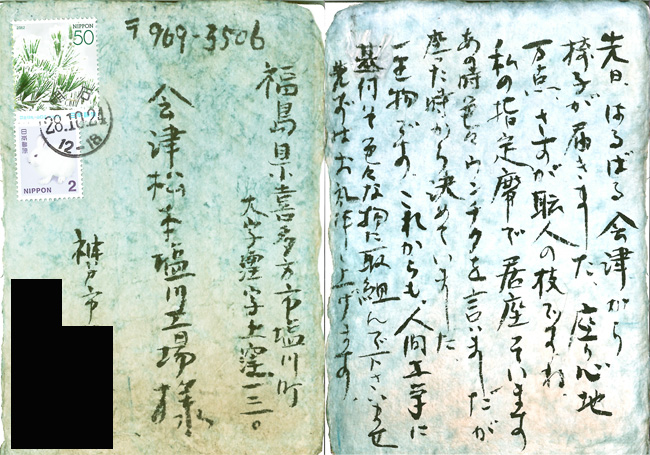 2002
NIPPON
50
神戸
28.10.24
12-18
日本郵便
NIPPON
2
〒969-3506
福島県喜多方市塩川町
会津松本塩川工場様
神戸市
先日、はるばる会津から
椅子が届きました、座り心地
万点、さすが職人の技ですね
私の指定席で居座っています
あの時色々ウンチクを言いましたが
座った時から決めていました
一生物です。これからも、人間工学に
基付いて色々な物に取組んで下さいませ
先ずはお礼申し上げます